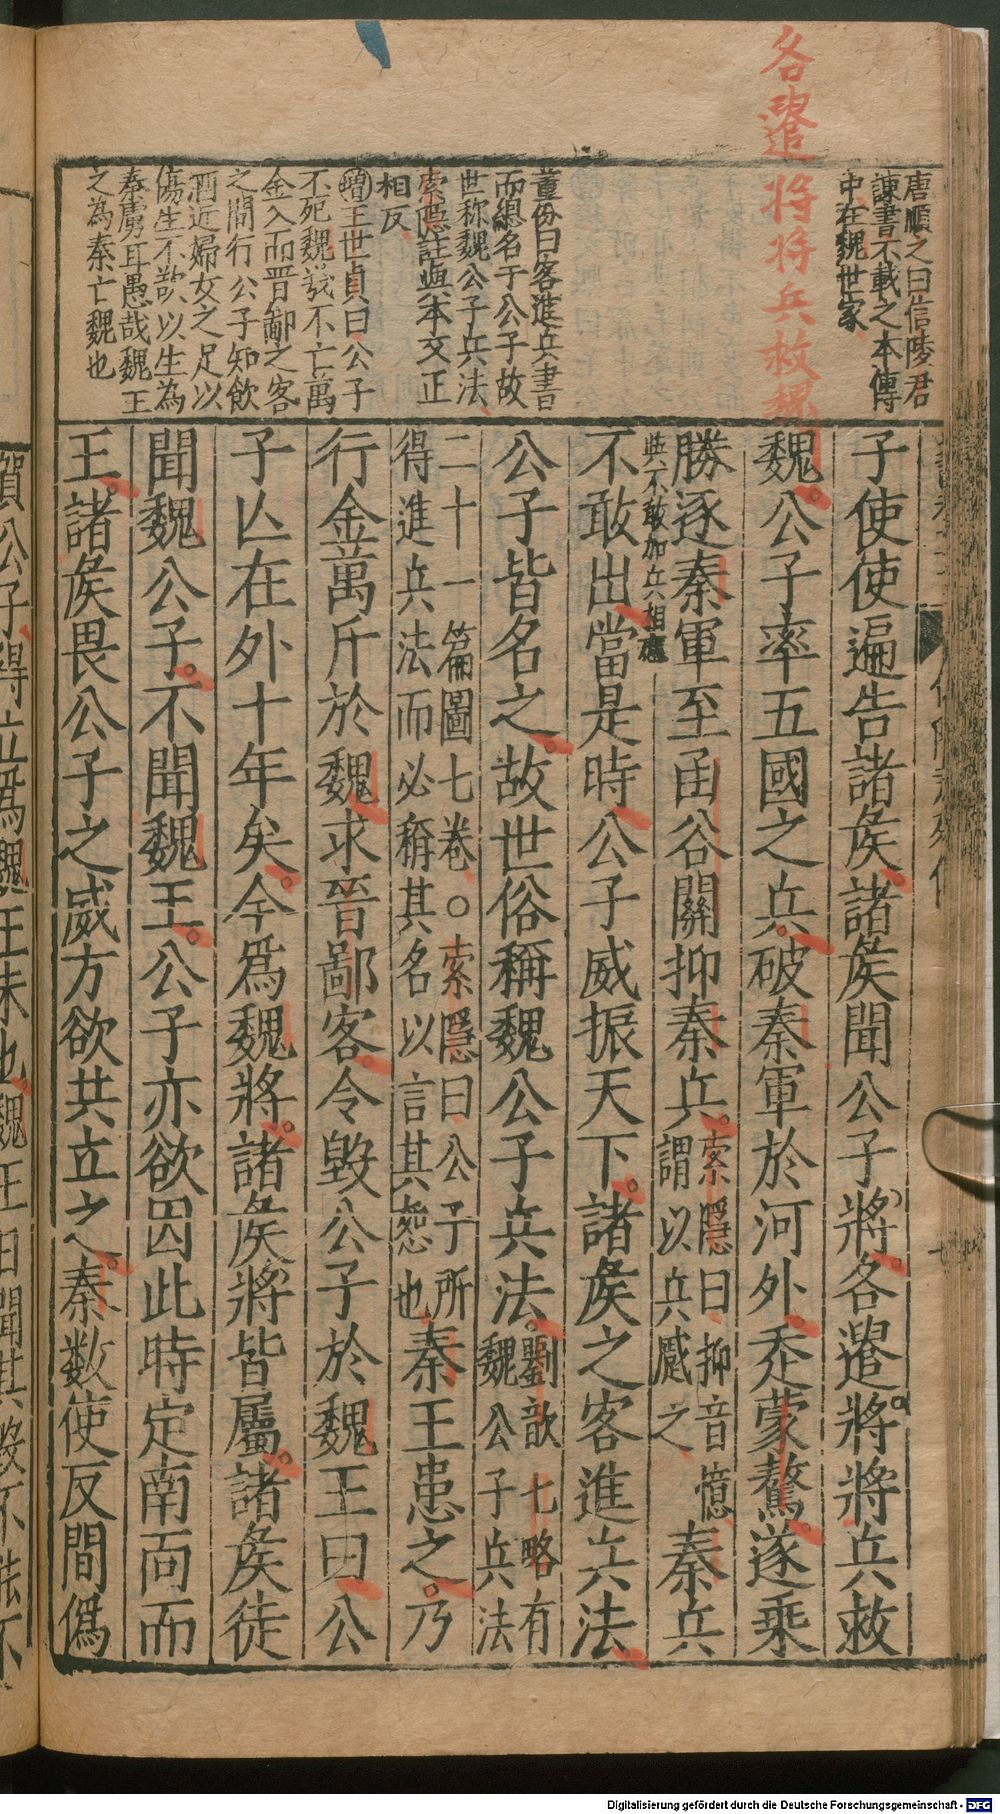 各遣將將兵救魏
唐順之曰信陵君
諫書不載之本傳
中在魏世家
董份曰客進兵書
而總名于公子故
世称魏公子兵法
索隱註與本文正
相反
增王世貞曰公子
不死魏㦲不亡萬
金入而晋鄙之客
之間行公子知飲
酒近婦女之足以
傷生不歎以生為
秦虜耳愚哉魏王
之為秦亡魏也
子使使遍告諸矦諸矦聞公子將各遣將將兵救
魏公子率五國之兵破秦軍於河外走蒙驁遂乘
勝逐秦軍至函谷關抑秦兵索隱曰抑音憶謂以兵蹙之秦兵
與不敢加兵相應
不敢出當是時公子威振天下諸矦之客進兵法
公子皆名之故世俗稱魏公子兵法劉歆七略有魏公子兵法
二十一篇圖七卷○索隱曰公子所
得進兵法而必稱其名以言其恕也秦王患之乃
行金萬斤於魏求晉鄙客令毀公子於魏王曰公
子亾在外十年矣今爲魏將諸矦將皆屬諸矦徒
聞魏公子不聞魏王公子亦欲因此時定南面而
王諸矦畏公子之威方欲共立之秦数使反間偽
賀公子得立爲魏王未也魏王日聞其毀不能不
Digitalisierung gefördert durch die Deutsche Forschungsgemeinschaft - DFG